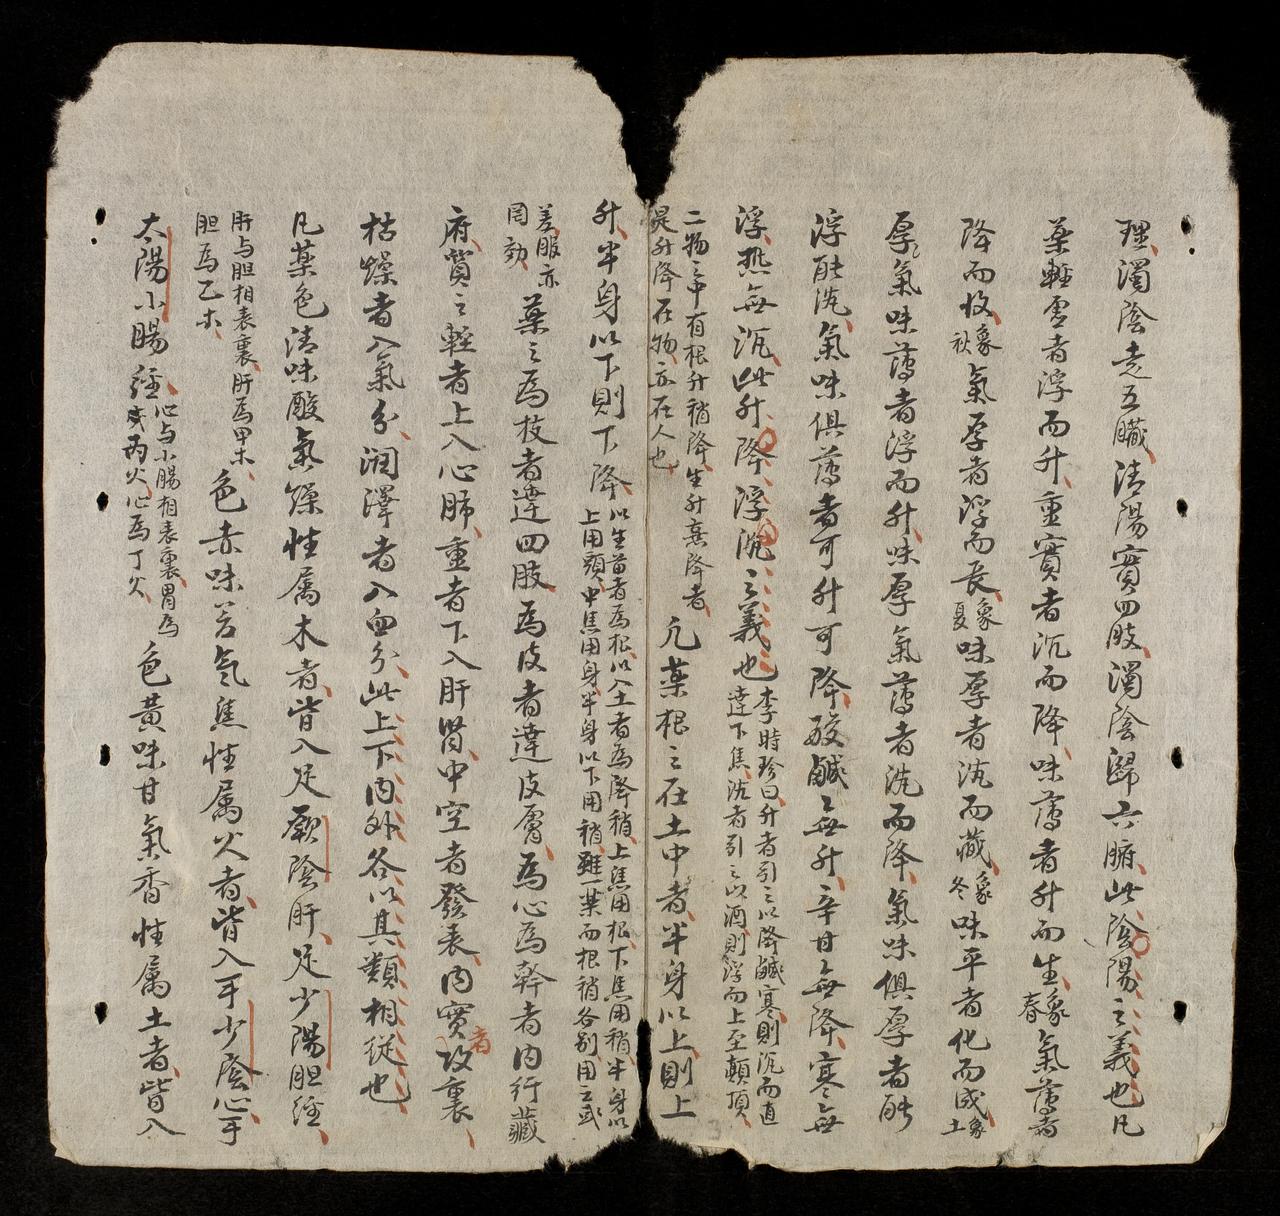 理濁陰走五臟清陽實四肢濁陰歸六腑此陰陽之義也凡
藥輕虛者浮而升重實者沉而降味薄者升而生象春氣薄者
降而收象秋氣厚者浮而長象夏味厚者沉而藏象冬味平者化而成象土
厚氣味薄者浮而升味厚氣薄者沉而降氣味俱厚者能
浮能沉氣味俱薄者可升可降酸鹹無升辛甘無降寒無
浮熱無沉此升降浮沉之義也李時珍曰升者引之以降鹹寒則沉而直
達下焦沉者引之以酒則浮而上至顛頂
二物之中有根升稍降生升熟降者
是升降在物亦在人也
凡藥根之在土中者半身以上則上
升半身以下則下降以生苗者為根以入土者為降稍上焦用根下焦用稍半身以
上用頭中焦用身半身以下用稍雖一藥而根稍各別用之或
差服亦
罔効
藥之為枝者達四肢為皮者達皮膚為心為幹者內行藏
府質之輕者上入心肺重者下入肝腎中空者發表內實者攻裏
枯燥者入氣分潤澤者入血分此上下內外各以其類相從也
凡藥色清味酸氣燥性属木者皆入足厥陰肝足少陽胆經
肝与胆相表裏肝為甲木
胆為乙木
色赤味苦氣焦性属火者皆入手少陰心手
太陽小腸經心与小腸相表裏胃為
戊丙火心為丁火
色黃味甘氣香性属土者皆入